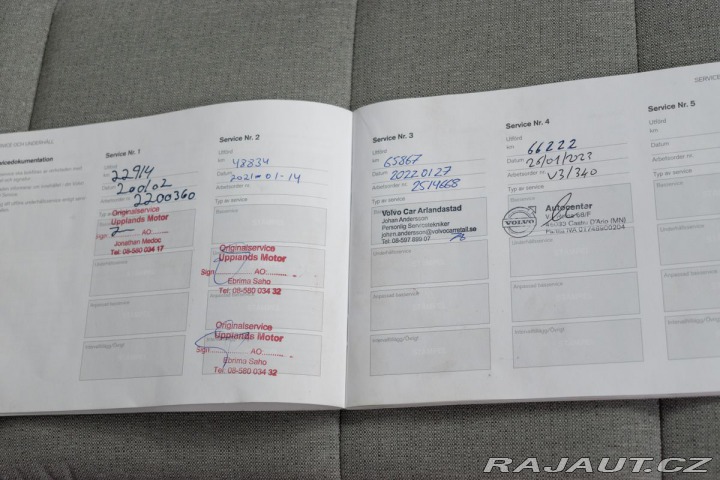 SERVICE OCH UNDERHÅLL
Servicedokumentation
Service Nr. 1
Utförd
km
22914
Datum
200102
Arbetsorder nr.
2200360
Typ av service
Originalservice
Upplands Motor
Sign AO:
Jonathan Medoc
Tel: 08-580 034 17
Underhållsservice
Anpassad basservice
Intervalltillägg/Övrigt
Service Nr. 2
Utförd
km
48834
Datum
2021-01-14
Arbetsorder nr.
Typ av service
Basservice
Originalservice
Upplands Motor
Sign AO:
Ebrima Saho
Tel: 08-580 034 32
Originalservice
Upplands Motor
Sign AO:
Ebrima Saho
Tel: 08-580 034 32
Service Nr. 3
Utförd
km
65867
Datum
20220127
Arbetsorder nr.
2514668
Typ av service
Basservice
Volvo Car Arlandastad
Johan Andersson
Personlig Servicetekniker
Tel: 08-597 899 07
Underhållsservice
Anpassad basservice
Intervalltillägg/Övrigt
Service Nr. 4
Utförd
km
66222
Datum
26/01/2023
Arbetsorder nr.
V3/340
Typ av service
Basservice
VOLVO
Autocenter
46033 Castel D'Ario (MN)
Underhållsservice
Anpassad basservice
Intervalltillägg/Övrigt
SERVICE
Service Nr. 5
Utförd
km
Datum
Arbetsorder nr.
Typ av service
Basservice
Underhållsservice
Anpassad basservice
Intervalltillägg/Övrigt
RAJAUT.CZ